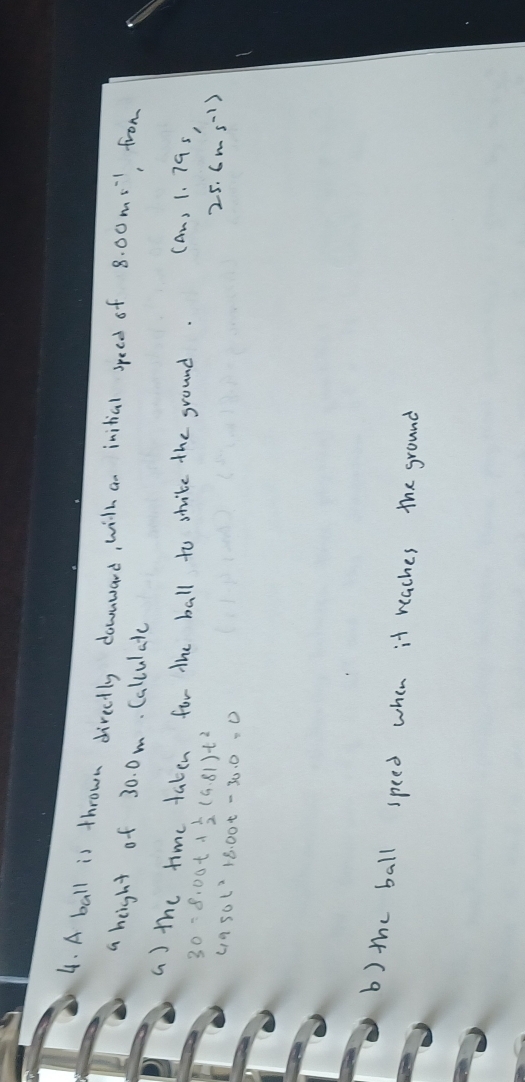 4. A ball is thrown directly downward, with an initial speed of 8.00 m s⁻¹, from
a height of 30.0 m. Calculate
a) the time taken for the ball to strike the ground. (Ans 1.79 s,
25.6 m s⁻¹)
30 = 8.00t + ½ (9.81) t²
4.9 50t² + 8.00t - 30.0 = 0
b) the ball speed when it reaches the ground